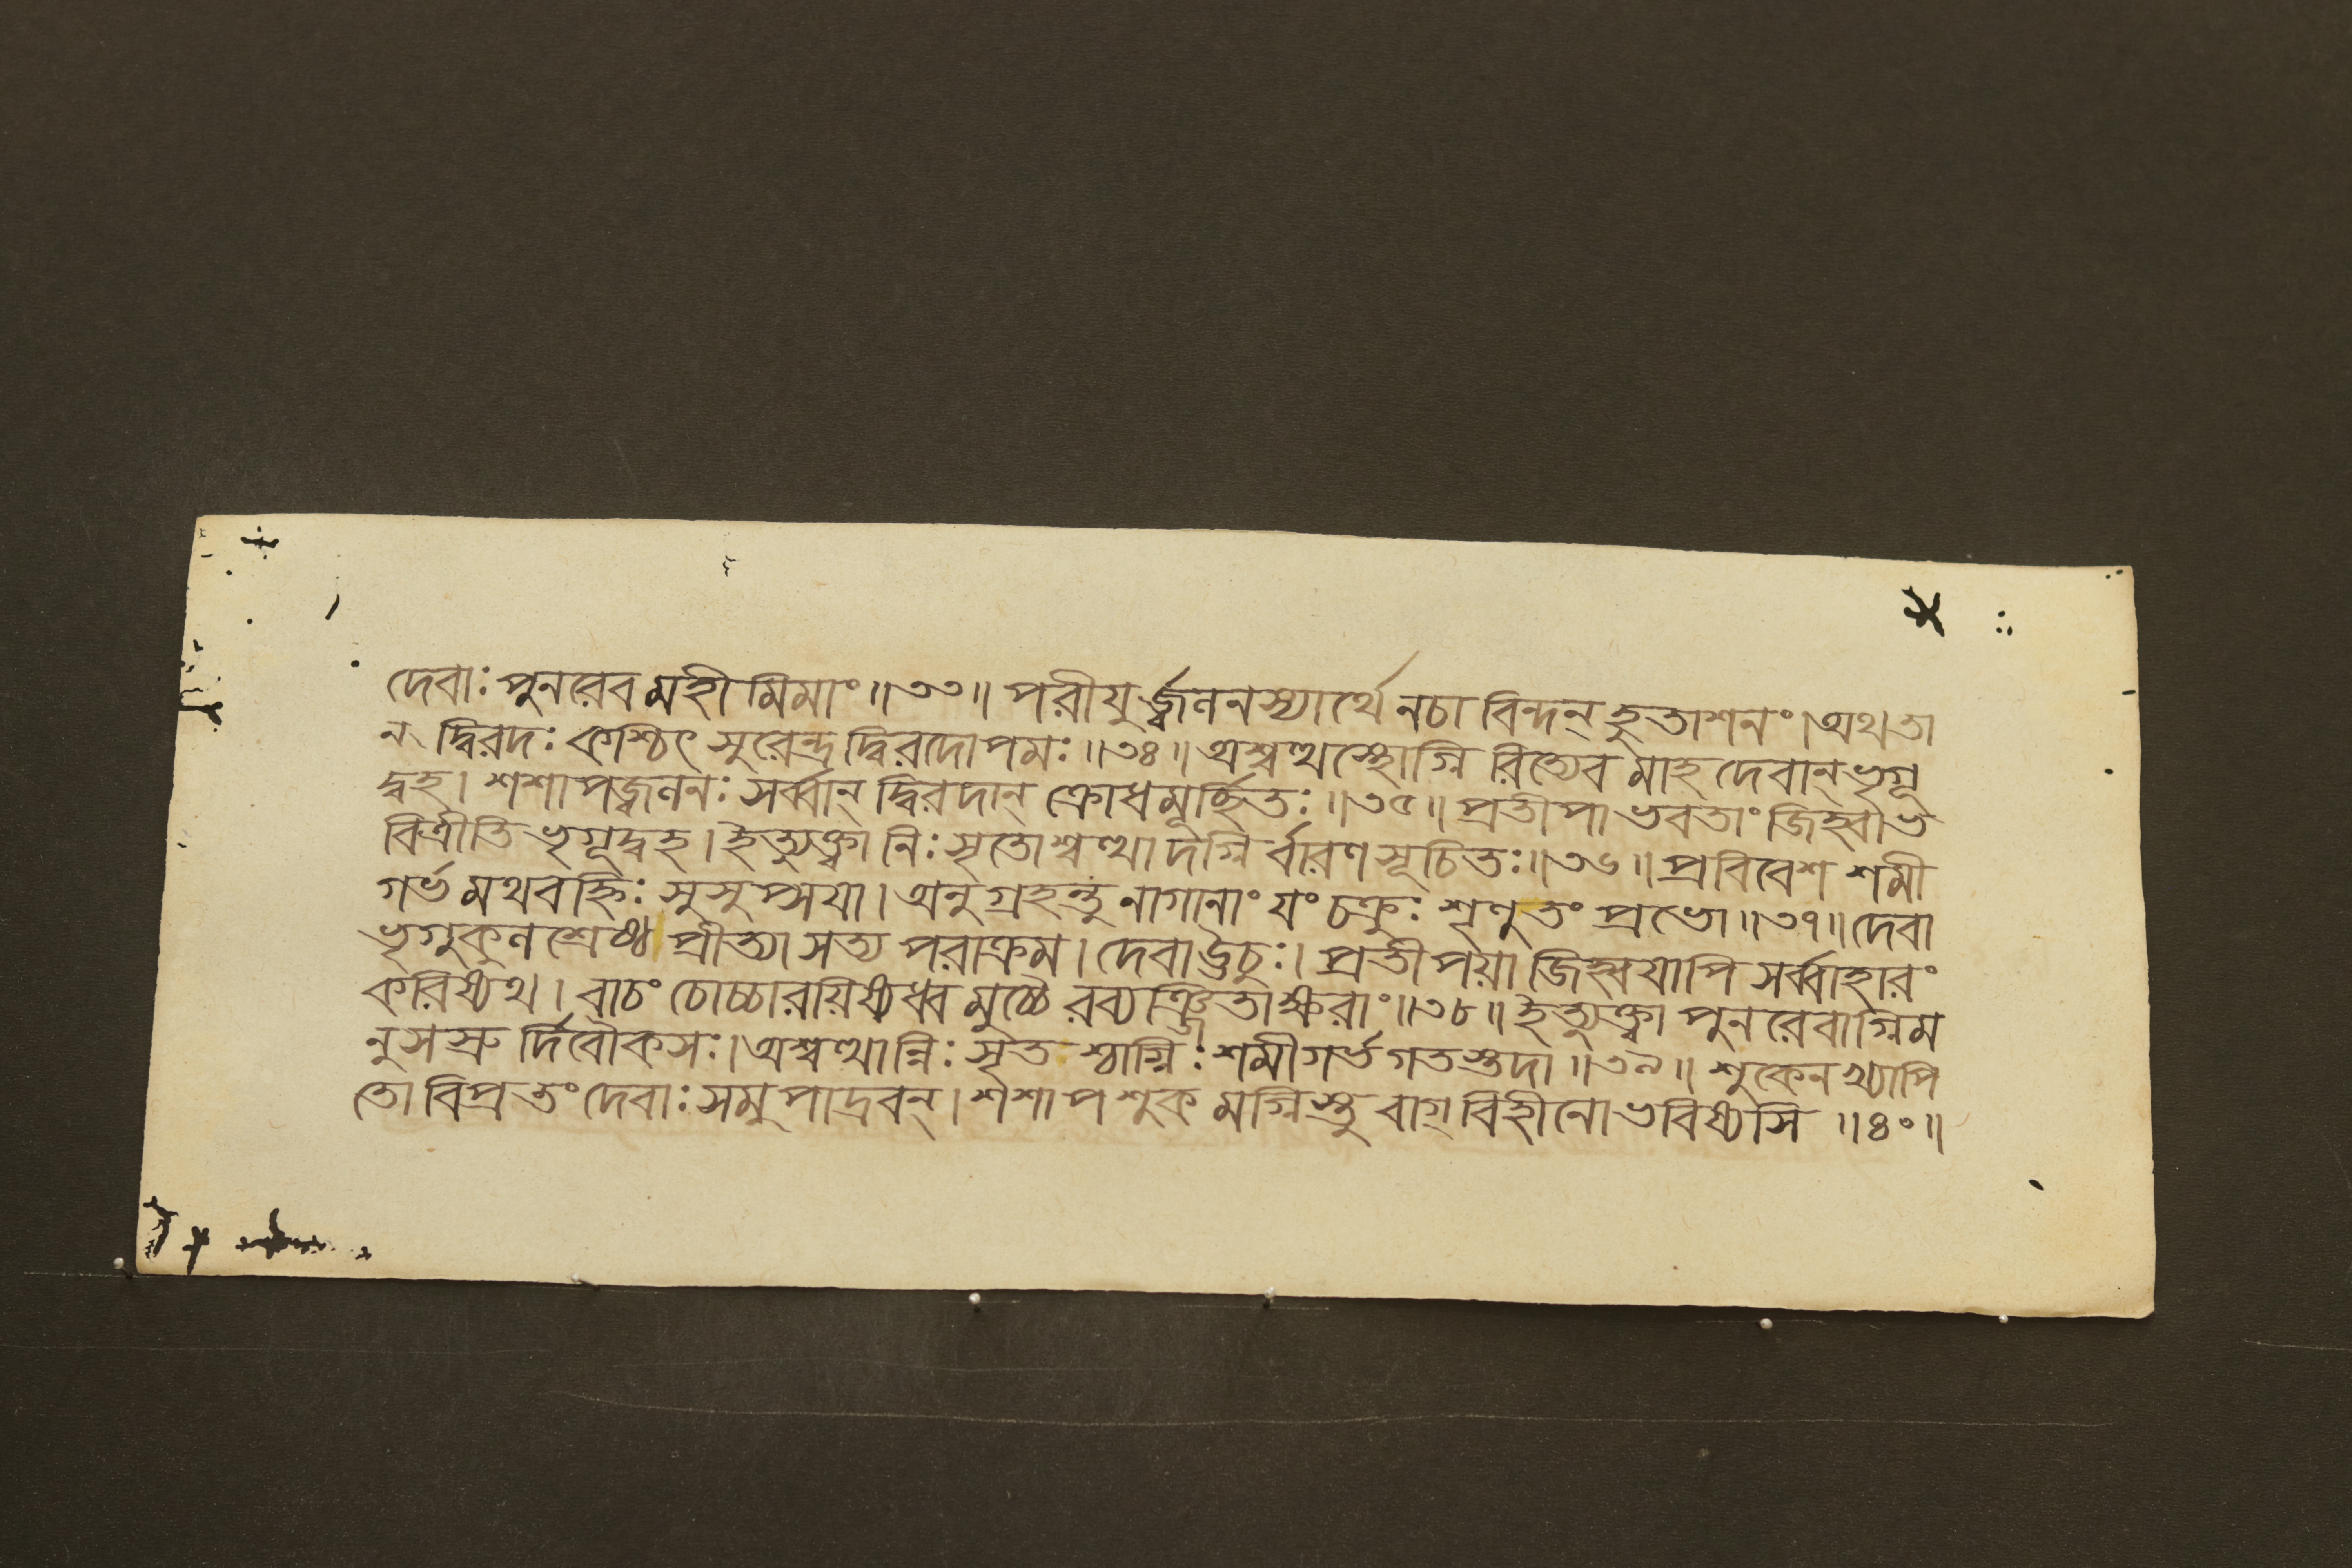 দেবাঃ পুনরেব মহীমিমাং॥৩৩॥ পরীযুর্জ্বলনস্যার্থে নচাবিন্দন্ হুতাশনং।অথতা
ন্ দ্বিরদঃ কশ্চিৎ সুরেন্দ্রদ্বিরদোপমঃ॥৩৪॥অশ্বত্থস্থোগ্নিরিত্যেবমাহ দেবান্ ভৃগূ
দ্বহ। শশাপজ্বলনঃ সর্ব্বান্ দ্বিরদান্ ক্রোধমূর্চ্ছিতঃ॥৩৫॥প্রতীপা ভবতাং জিহ্বাভ
বিত্রীতি ভৃগূদ্বহ।ইত্যুক্ত্বা নিঃসৃতোশ্বত্থাদগ্নির্বারণসূচিতঃ॥৩৬॥প্রবিবেশ শমী
গর্ভমথবহ্নিঃ সুসুপ্সয়া।অনুগ্রহন্তু নাগানাং যং চক্রুঃ শৃণু তং প্রভো॥৩৭॥দেবা
ভৃগুকুলশ্রেষ্ঠ প্রীত্যা সত্যপরাক্রম। দেবা ঊচুঃ। প্রতীপয়া জিহ্বয়াপি সর্ব্বাহারং
করিষ্যথ। বাচং চোচ্চারয়িষ্যধ্বমুচ্চৈরব্যঞ্জিতাক্ষরাং॥৩৮॥ইত্যুক্ত্বা পুনরেবাগ্নিম
নুসস্রুর্দিবৌকসঃ।অশ্বত্থান্নিঃসৃতশ্চাগ্নিঃ শমীগর্ভগতস্তদা॥৩৯॥ শুকেনখ্যাপি
তো বিপ্র তং দেবাঃ সমুপাদ্রবন্। শশাপ শুকমগ্নিস্তু বাগ্ বিহীনো ভবিষ্যসি॥৪০॥